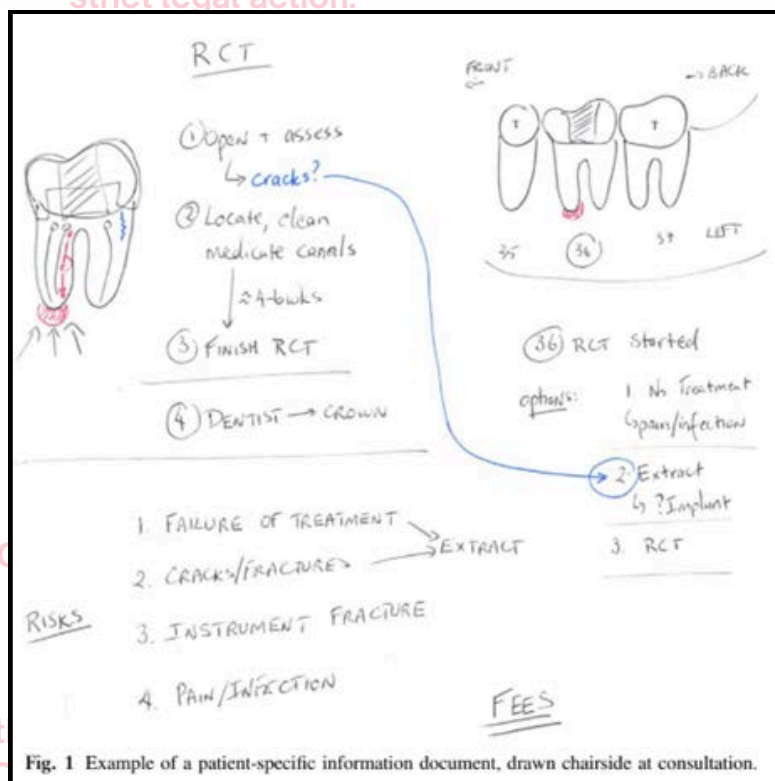 strict legal action.
RCT
① Open + assess
↳ cracks?
② Locate, clean
medicate canals
≈ 4-6wks
③ FINISH RCT
④ DENTIST → CROWN
FRONT
→ BACK
T
T
35
36
37
LEFT
36 RCT Started
options:
1 No Treatment
↳ pain/infection
2. Extract
↳ ? Implant
3. RCT
RISKS
1. FAILURE OF TREATMENT
2. CRACKS/FRACTURES
EXTRACT
3. INSTRUMENT FRACTURE
4. PAIN/INFECTION
FEES
Fig. 1 Example of a patient-specific information document, drawn chairside at consultation.